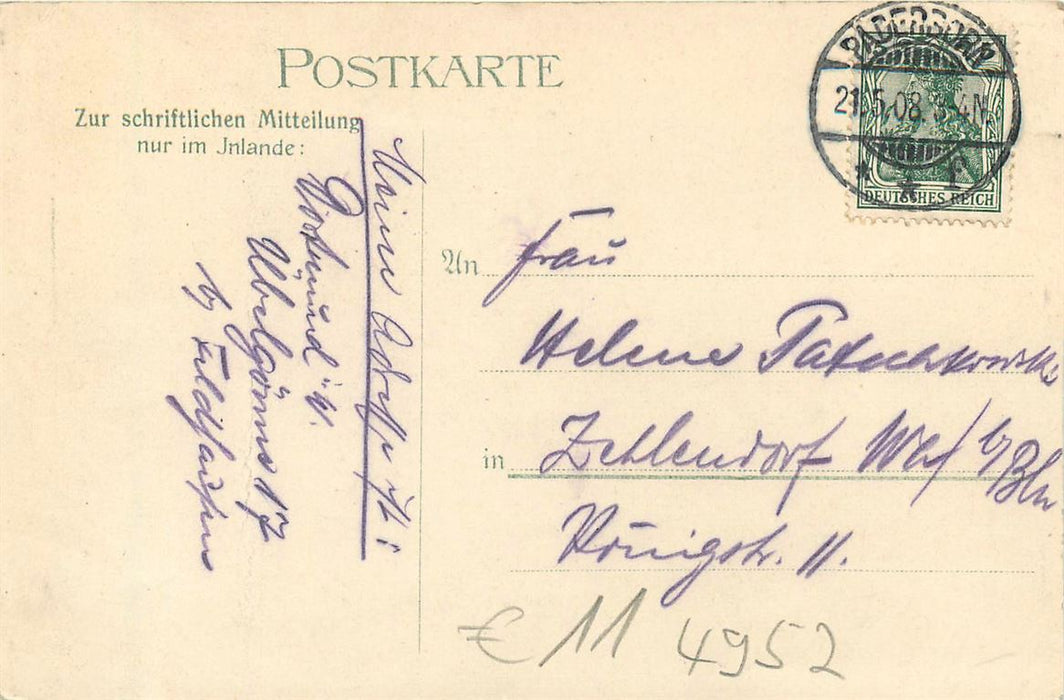 POSTKARTE
Zur schriftlichen Mitteilung
nur im Inlande:
PADERBORN
21.5.08. 3-4N.
* * f
DEUTSCHES REICH
Meine Adresse ist:
Dortmund
17
An Frau
Helene
in Zehlendorf b/Bln
Königstr. 11.
€ 11 4952